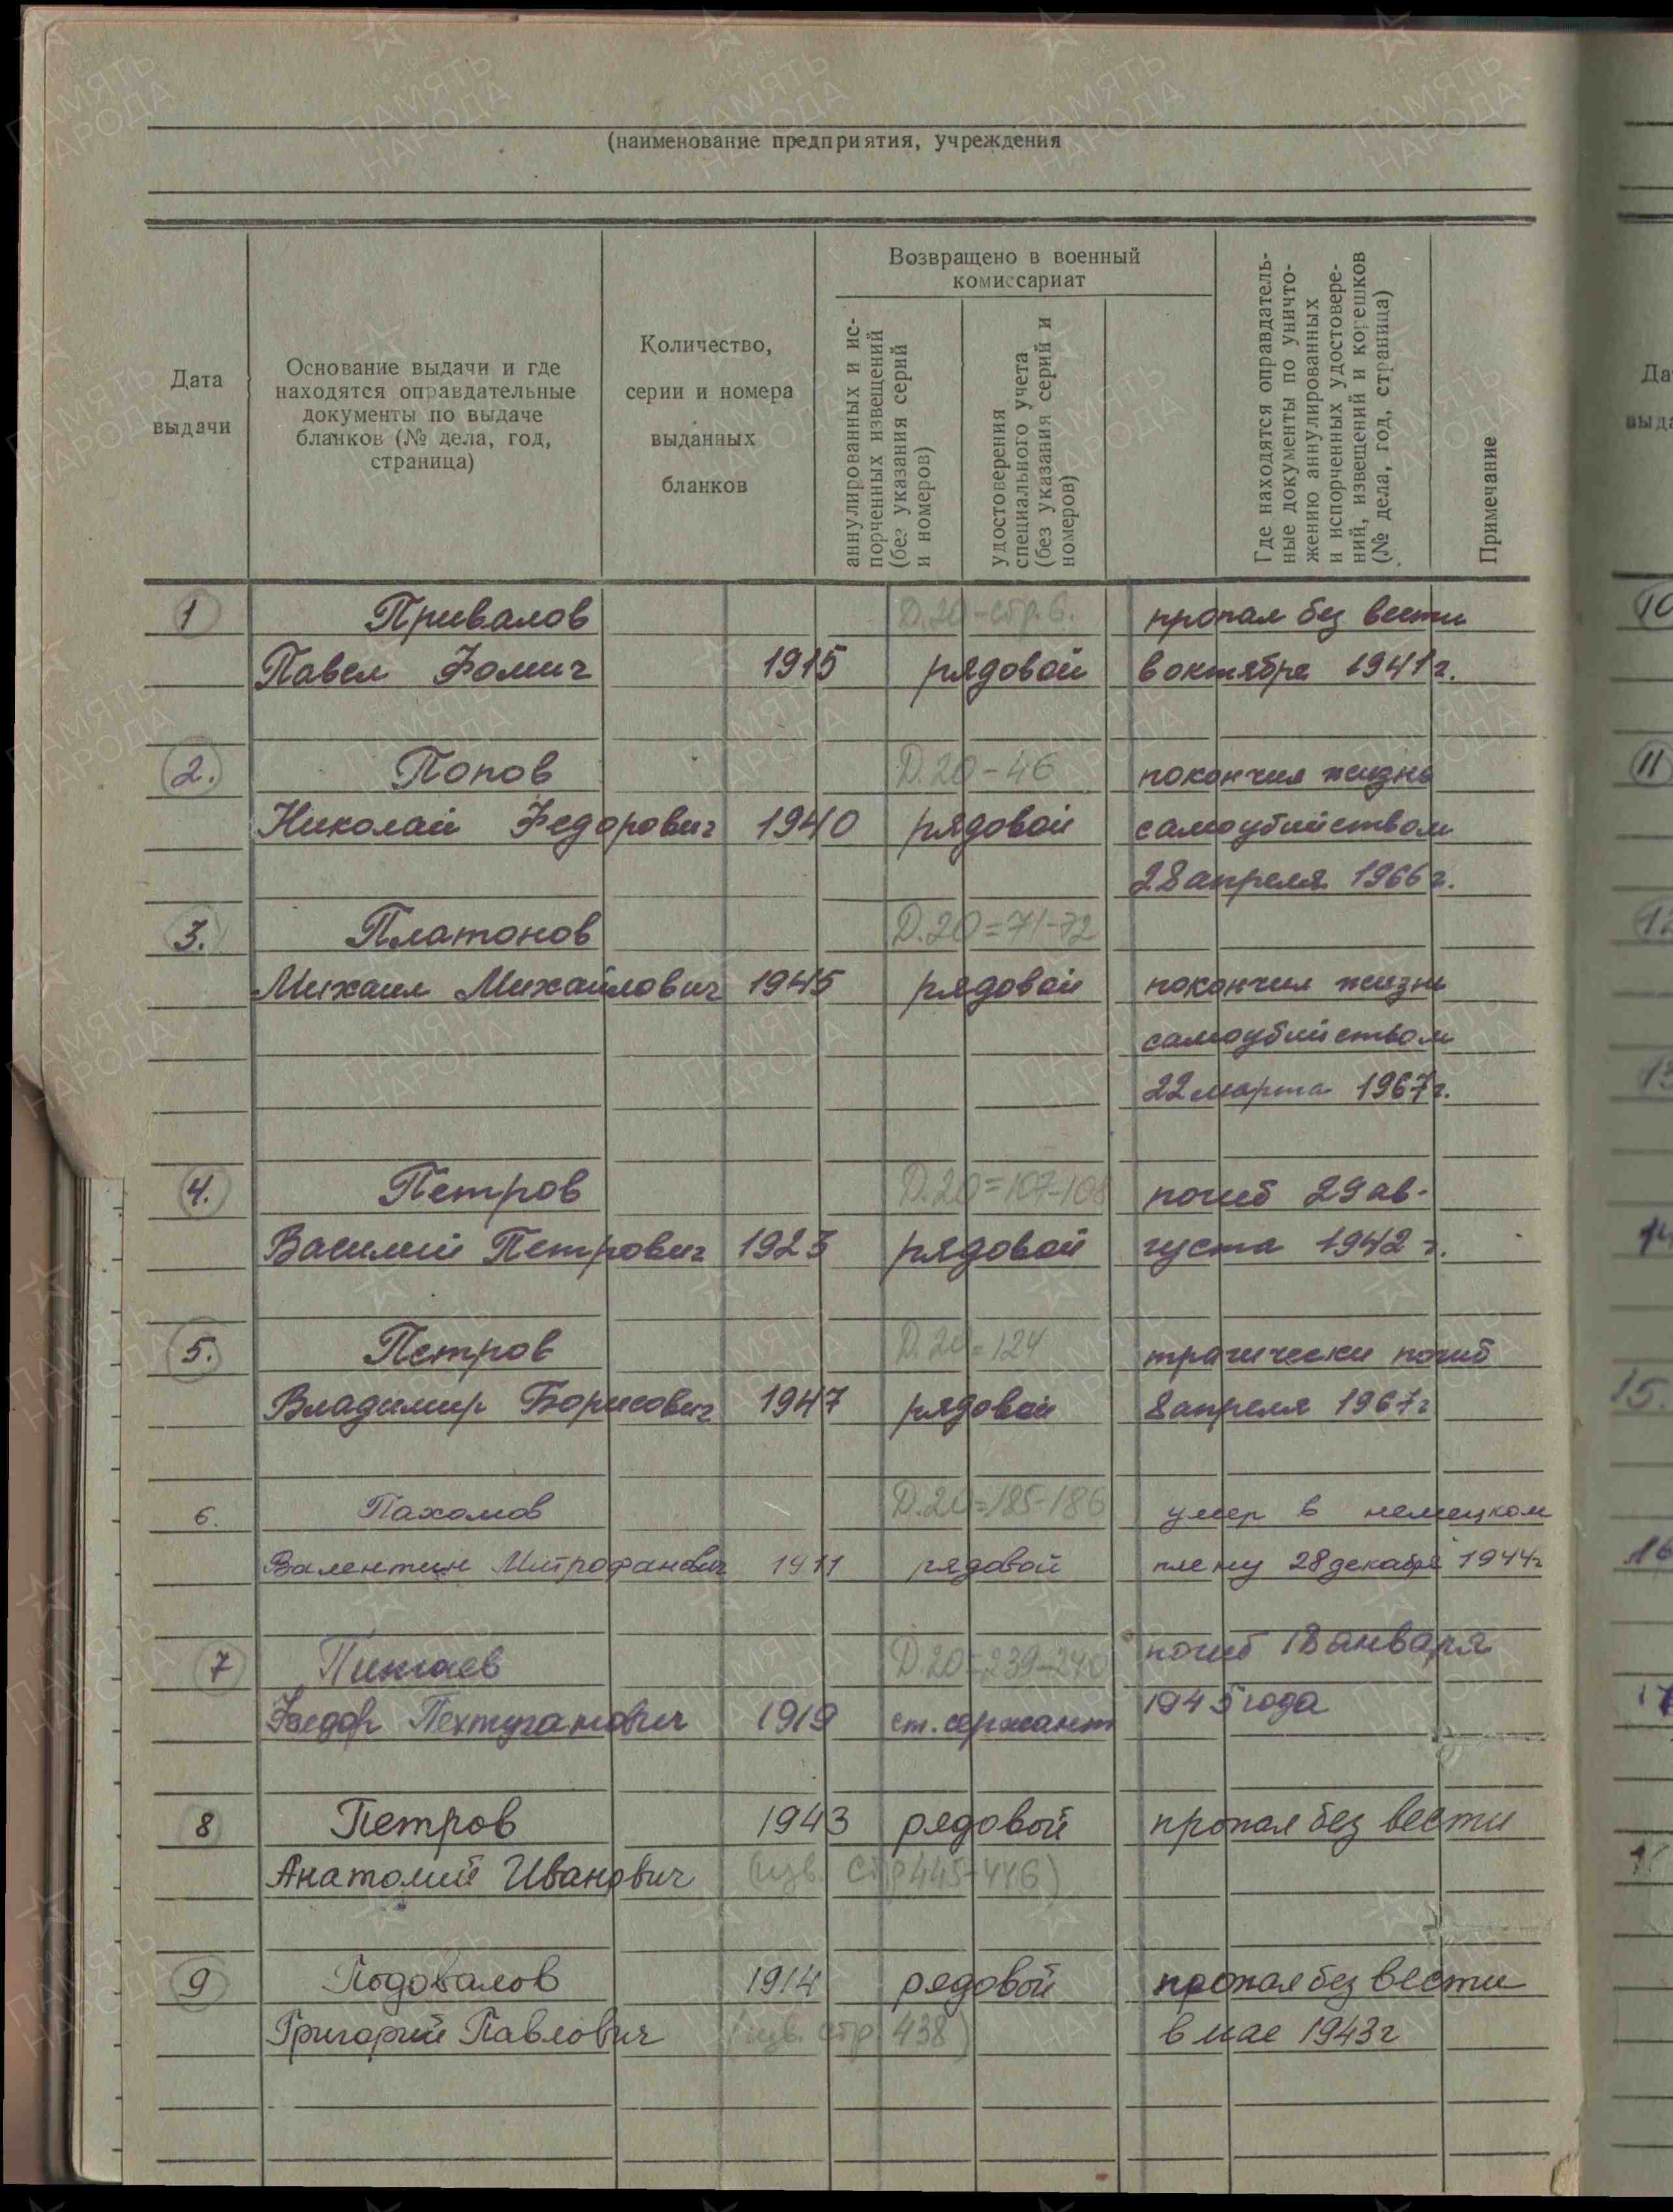 (наименование предприятия, учреждения
Дата
выдачи
Основание выдачи и где
находятся оправдательные
документы по выдаче
бланков (№ дела, год,
страница)
Количество,
серии и номера
выданных
бланков
Возвращено в военный
комиссариат
аннулированных и ис-
порченных извещений
(без указания серий
и номеров)
удостоверения
специального учета
(без указания серий и
номеров)
Где находятся оправдатель-
ные документы по уничто-
жению аннулированных
и испорченных удостовере-
ний, извещений и корешков
(№ дела, год, страница)
Примечание
1 Привалов Д.20-стр.6. пропал без вести
Павел Фомич 1915 рядовой в октябре 1941г.
2. Попов Д.20-46 покончил жизнь
Николай Федорович 1940 рядовой самоубийством
28 апреля 1966г.
3. Платонов Д.20=71-72
Михаил Михайлович 1945 рядовой покончил жизнь
самоубийством
22 марта 1967г.
4. Петров Д.20=107-108 погиб 29 ав-
Василий Петрович 1923 рядовой густа 1942 г.
5. Петров Д.20=124 трагически погиб
Владимир Борисович 1947 рядовой 8 апреля 1967г
6. Пахомов Д.20=185-186 умер в немецком
Валентин Митрофанович 1911 рядовой плену 28 декабря 1944г
7 Д.20=239-240 погиб 18 января
Федор Пехтуганович 1919 ст. сержант 1945 года
8 Петров 1943 рядовой пропал без вести
Анатолий Иванович (изв. стр 445-446)
9 Подовалов 1914 рядовой пропал без вести
Григорий Павлович (изв. стр 438) в мае 1943г
Да
выда
10
11
12
13
14
15.
16
17
ПАМЯТЬ
НАРОДА